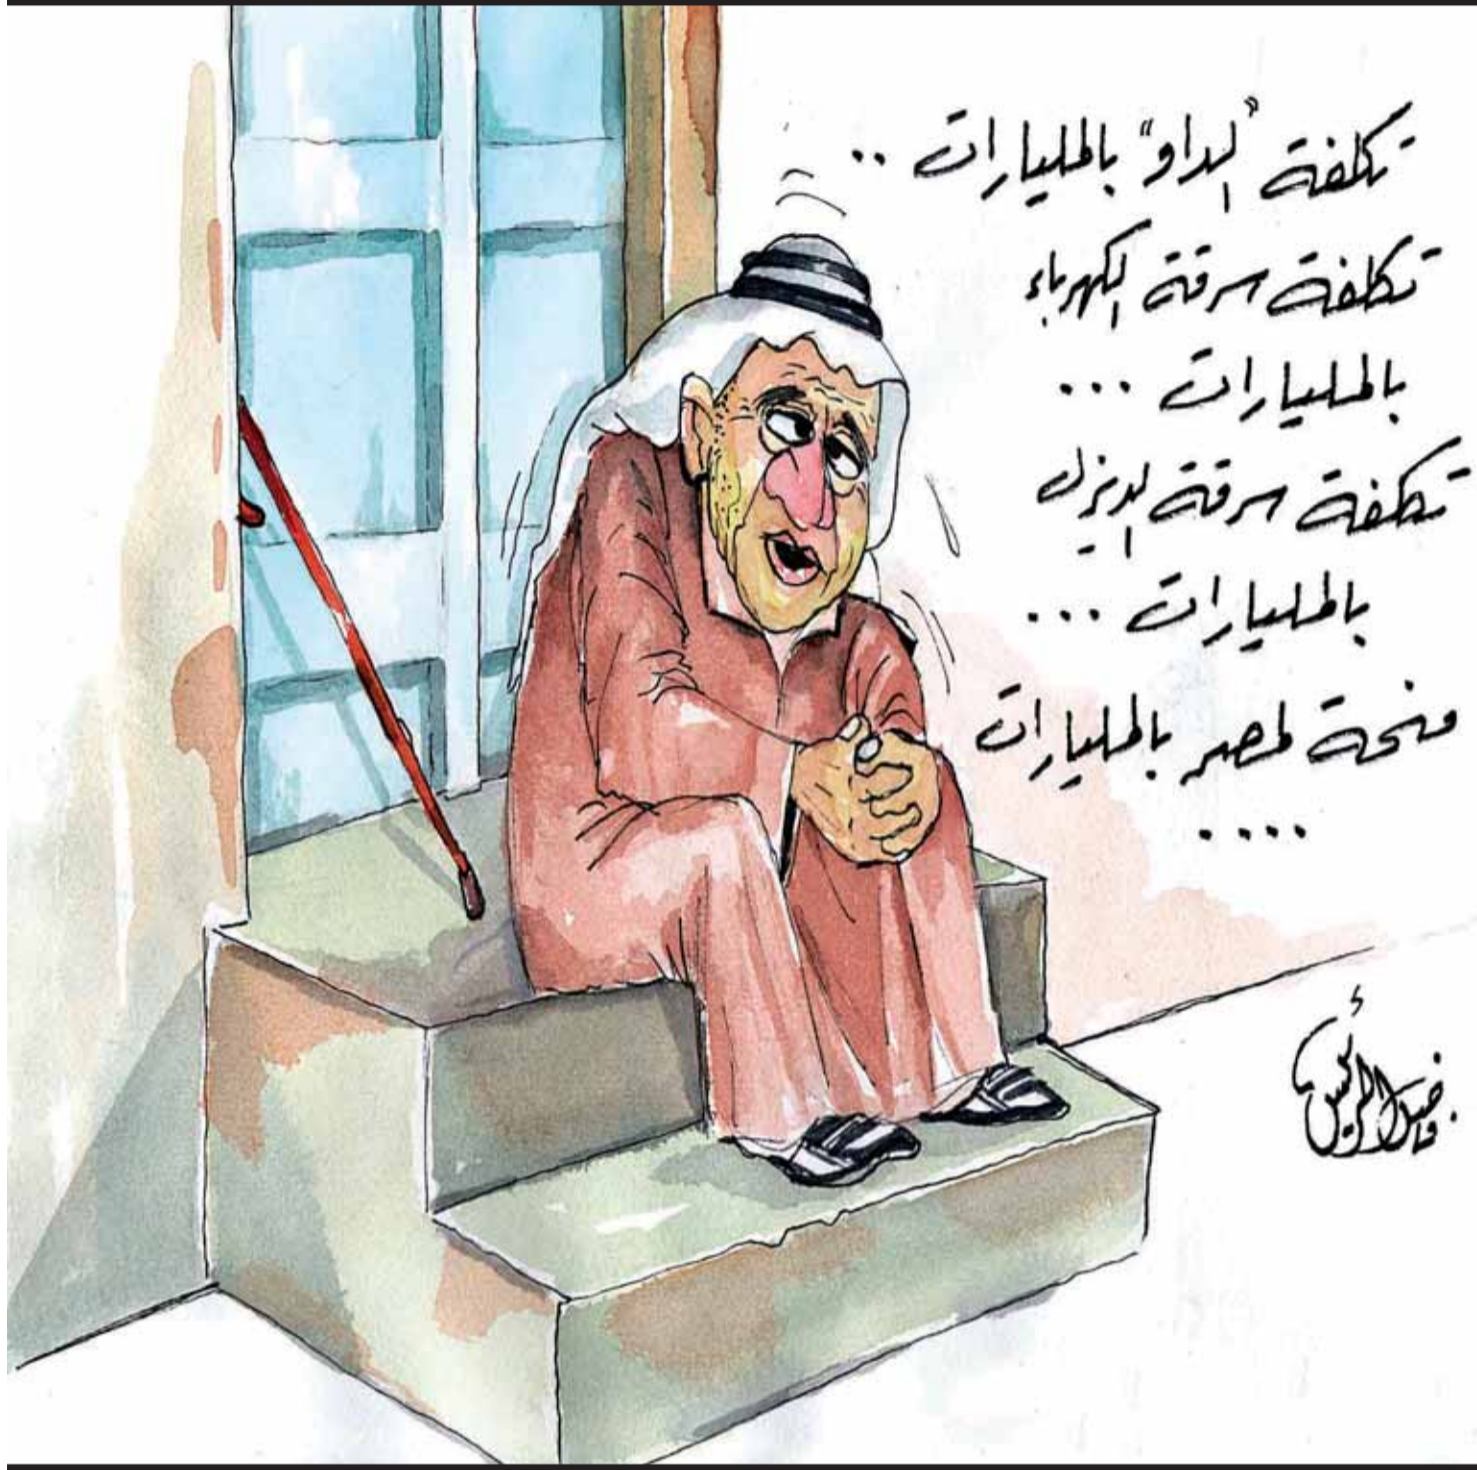 تكلفة "الداو" بالمليارات ..
تكلفة سرقة الكهرباء
بالمليارات ...
تكلفة سرقة الديزل
بالمليارات ...
منحة لمصر بالمليارات
....